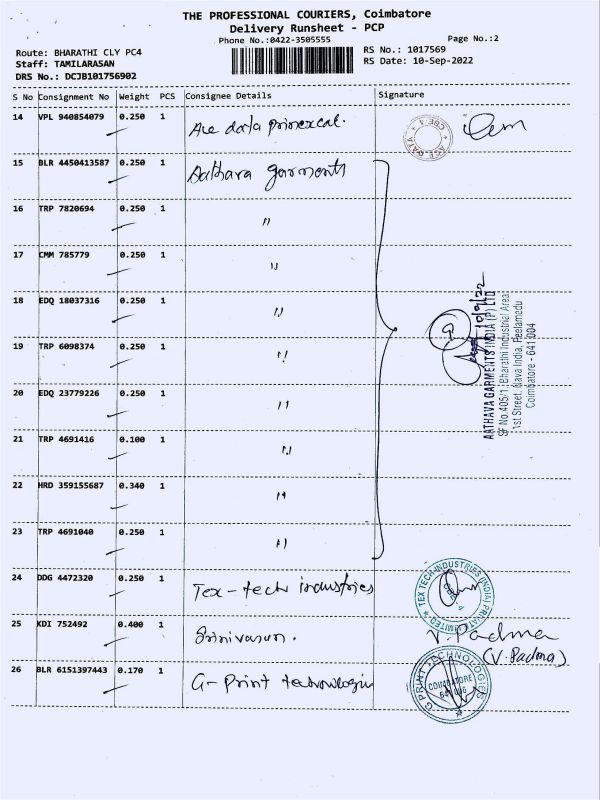 THE PROFESSIONAL COURIERS, Coimbatore
Delivery Runsheet - PCP
Phone No.:0422-3505555
Page No.:2
Route: BHARATHI CLY PC4
RS No.: 1017569
Staff: TAMILARASAN
RS Date: 10-Sep-2022
DRS No.: DCJB101756902
S No Consignment No Weight PCS Consignee Details Signature
14 VPL 940854079 0.250 1 Ace data primexcel.
15 BLR 4450413587 0.250 1 Aathava garments
16 TRP 7820694 0.250 1 "
17 CMM 785779 0.250 1 "
18 EDQ 18037316 0.250 1 "
19 TRP 6098374 0.250 1 "
20 EDQ 23779226 0.250 1 "
21 TRP 4691416 0.100 1 "
22 HRD 359155687 0.340 1 "
23 TRP 4691040 0.250 1 "
10/9/22
AATHAVA GARMENTS INDIA (P) LTD
SF No.405/1, Bharathi Industrial Area,
1st Street, Nava India, Peelamedu
Coimbatore - 641 004
24 DDG 4472320 0.250 1 Tex-tech industries
TEX TECH INDUSTRIES (INDIA) PRIVATE LIMITED
25 KDI 752492 0.400 1 Srinivasan. V. Padma
(V. Padma)
26 BLR 6151397443 0.170 1 G-Print technologies
G PRINT TECHNOLOGIES
COIMBATORE